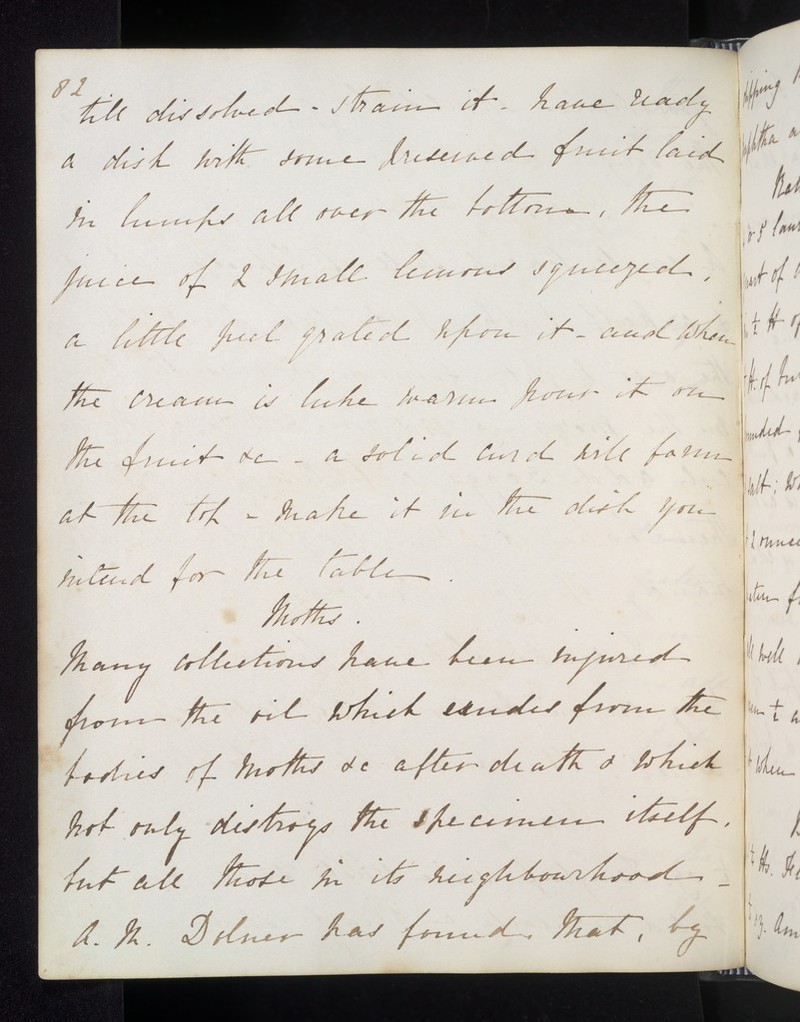 82
till dissolved - strain it - have ready
a dish with some preserved fruit laid
in lumps all over the bottom, the
juice of 2 small lemons squeezed,
a little peel grated upon it - and when
the cream is luke warm pour it on
the fruit &c - a solid curd will form
at the top - make it in the dish you
intend for the table.
Moths.
Many collections have been injured
from the oil which exudes from the
bodies of Moths &c after death & which
not only distroys the specimen itself,
but all those in its neighbourhood -
A. M. Dolner has found that, by
ipping
aphtha a
or 5
part of
½ lb of
lb. of
ounded
salt; w
2 ounces
well
½ a
when
lbs.